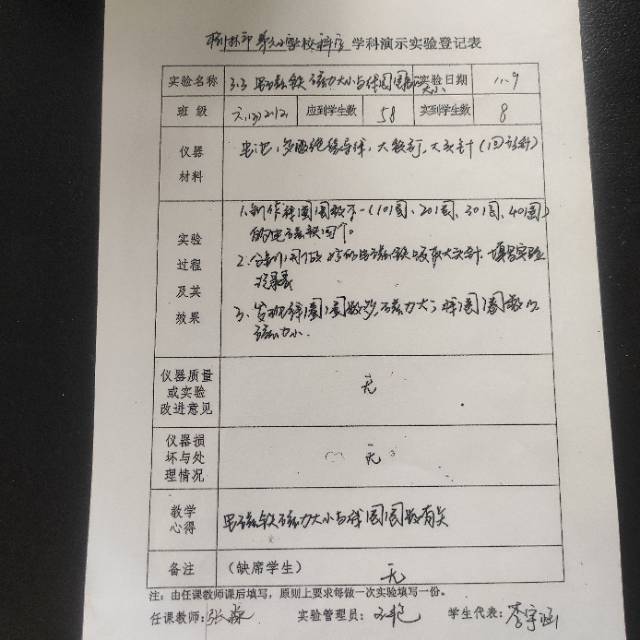 学科演示实验登记表
实验名称 3.3 电磁铁磁力大小与线圈圈数 实验日期 11.9
大小
班 级 应到学生数 58 实到学生数 8
仪器 电池、多股绝缘导体、大铁钉、大头针(回形针)
材料
实验 1.制作线圈圈数不一(10圈、20圈、30圈、40圈)
的电磁铁四个。
过程 2. 电磁铁吸取大头针,填写实验
及其 记录表
效果 3、发现线圈圈数多,磁力大;线圈圈数少
磁力小.
仪器质量
或实验 无
改进意见
仪器损
坏与处 无
理情况
教学 电磁铁磁力大小与线圈圈数有关
心得
备注 (缺席学生) 无
注:由任课教师课后填写,原则上要求每做一次实验填写一份。
任课教师:张 实验管理员: 学生代表:李宇涵